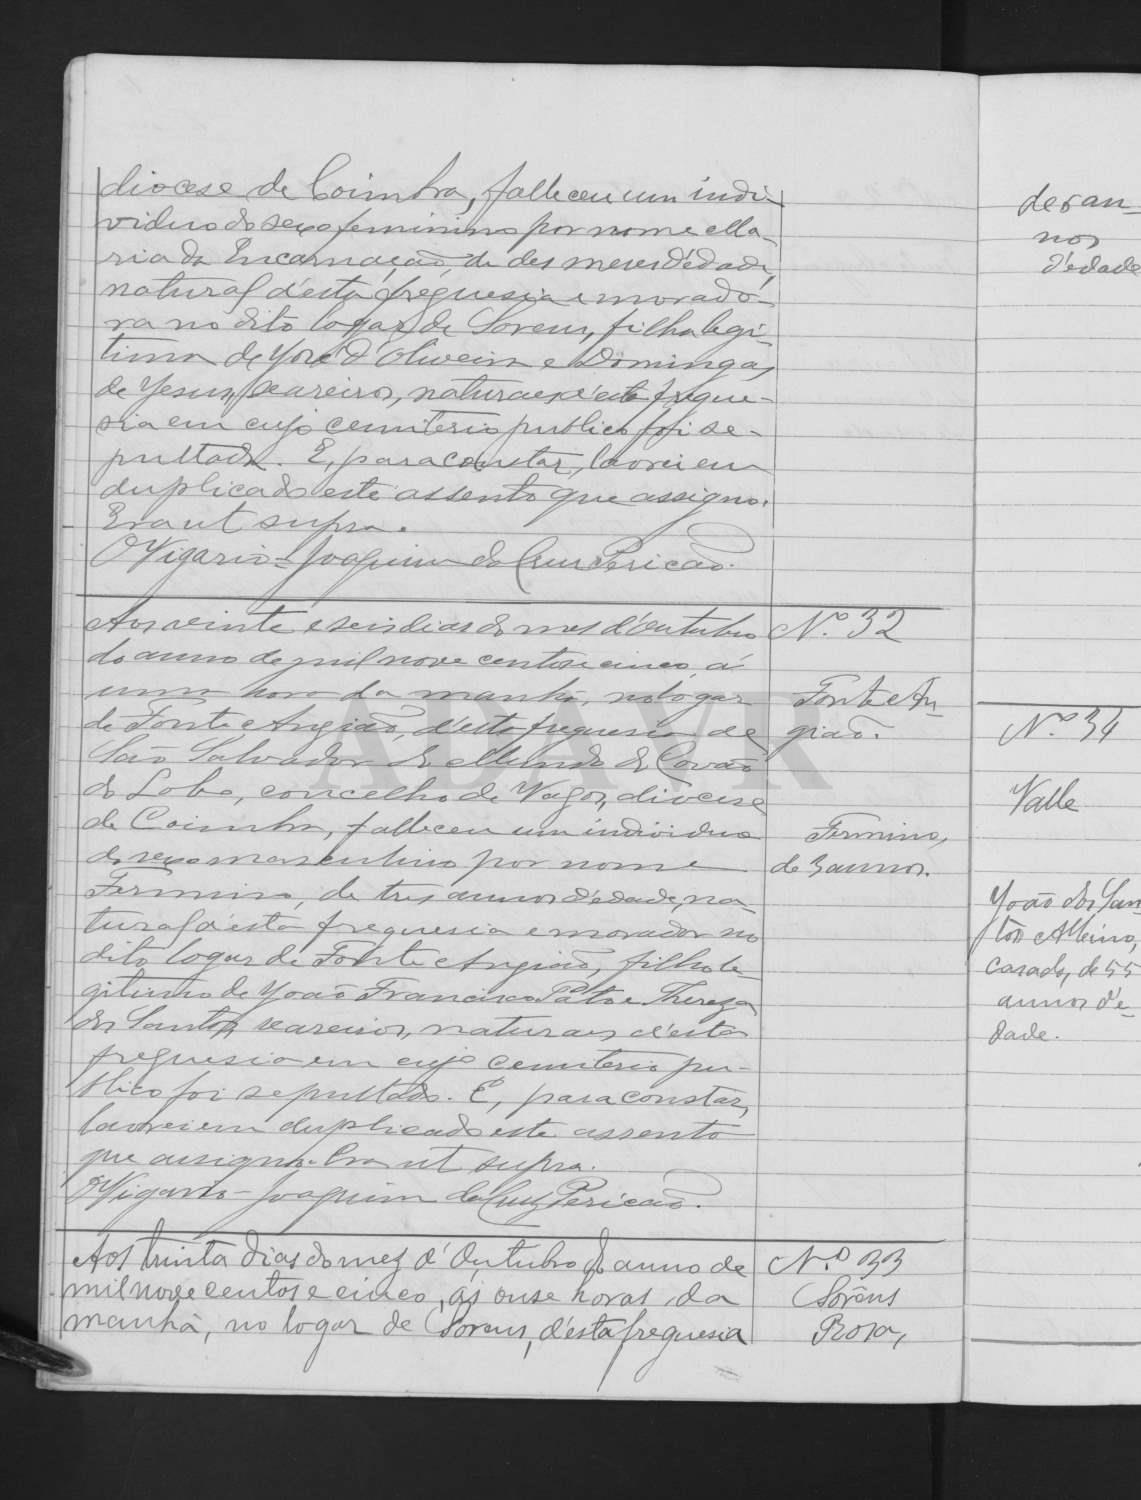 diocese de Coimbra, falleceu um indi-
viduo do sexo feminino por nome Ma-
ria da Encarnação, de des meses d'edade,
natural d'esta freguesia e morado-
ra no dito logar de Sorens, filha legi-
tima de José d'Oliveira e Domingas
de Jesus, seareiros, naturaes d'esta fregue-
sia em cujo cemiterio publico foi se-
pultada. E, para constar, lavrei em
duplicado este assento que assigno.
Era ut supra.
O Vigario = Joaquim da Cruz Pericão.
Aos vinte e seis dias do mes d'Outubro
do anno de mil nove centos e cinco, á
uma hora da manhã, no logar
de Fonte Angião, d'esta freguesia de
São Salvador do Mundo de Covão
do Lobo, concelho de Vagos, diocese
de Coimbra, falleceu um individuo
do sexo masculino por nome
Fermino, de tres annos d'edade, na-
tural d'esta freguesia e morador no
dito logar de Fonte Angião, filho le-
gitimo de João Francisco Pato e Thereza
dos Santos, seareiros, naturaes d'esta
freguesia em cujo cemiterio pu-
blico foi sepultado. E, para constar,
lavrei em duplicado este assento
que assigno. Era ut supra.
O Vigario - Joaquim da Cruz Pericão.
Aos trinta dias do mez d'Outubro do anno de
mil nove centos e cinco, ás onse horas da
manhã, no logar de Sorens, d'esta freguesia
Nº 32
Fonte An-
gião.
Fermino,
de 3 annos.
N.º 33
Sorens
Rosa,
de 8 an-
nos
d'edade
Nº 34
Valle
João dos San-
tos Albino,
casado, de 55
annos d'e-
dade.
ADAVR